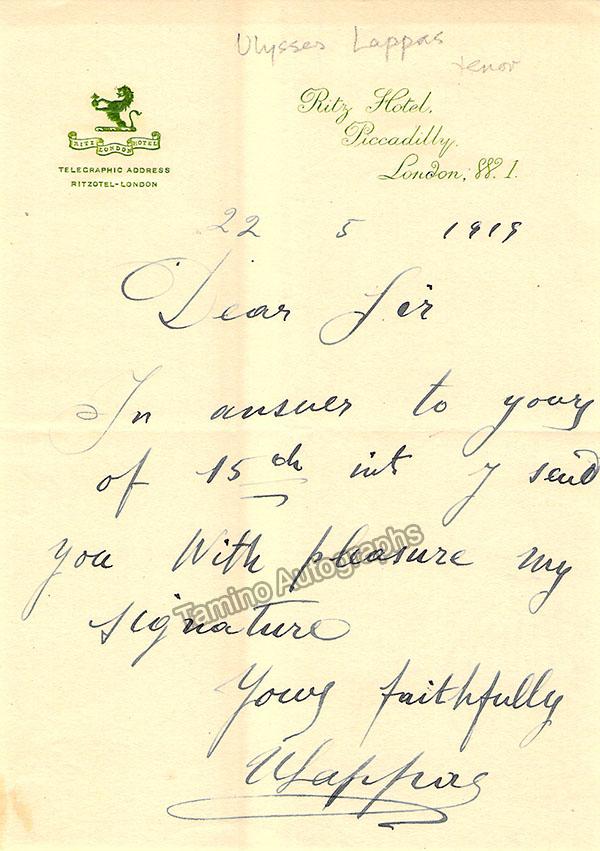 Ulysses Lappas
tenor
RITZ LONDON HOTEL
TELEGRAPHIC ADDRESS
RITZOTEL-LONDON
Ritz Hotel,
Piccadilly.
London, W. 1.
22 5 1919
Dear Sir
In answer to yours
of 15th inst I send
you With pleasure my
signature
Yours faithfully
ULappas
Tamino Autographs